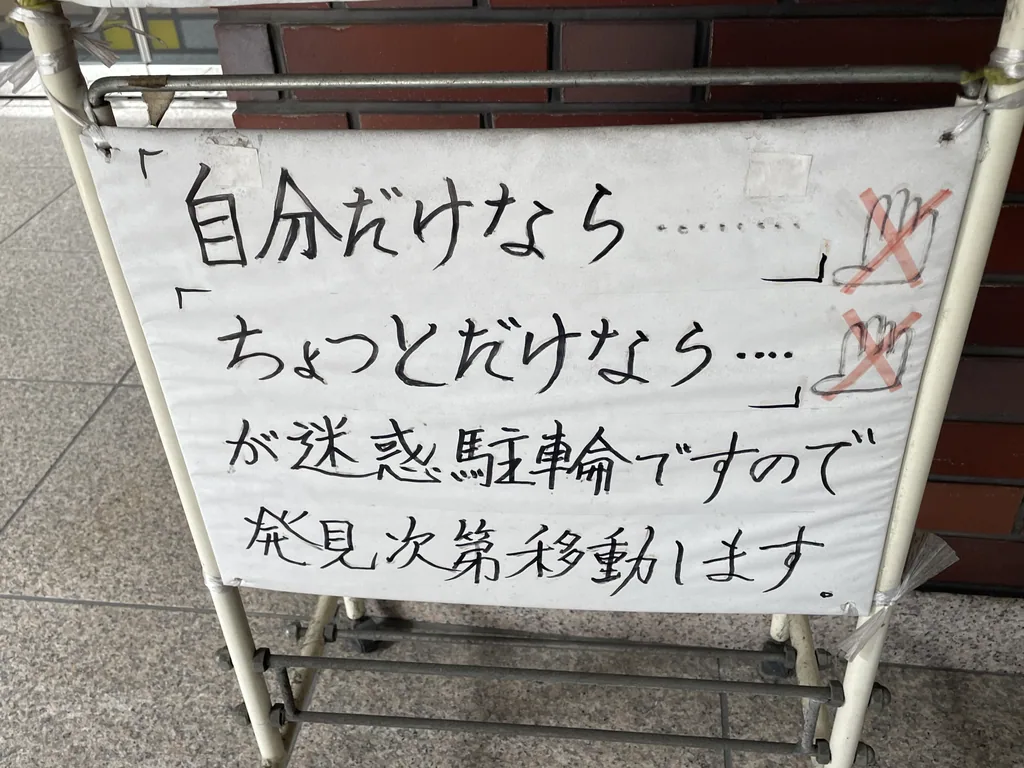 「自分だけなら………」
「ちょっとだけなら‥‥」
が迷惑駐輪ですので
発見次第移動します。